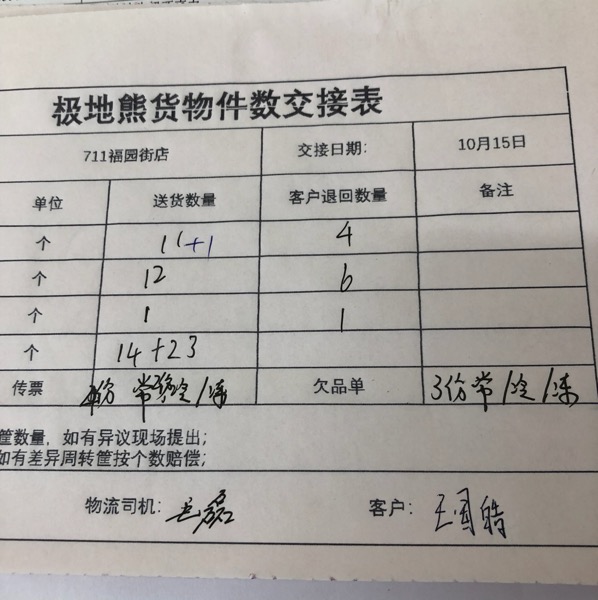 极地熊货物件数交接表
711福园街店 交接日期: 10月15日
单位 送货数量 客户退回数量 备注
个 11+1 4
个 12 6
个 1 1
个 14+23
传票 常 冷/冻 欠品单 3份常/冷/冻
筐数量，如有异议现场提出;
如有差异周转筐按个数赔偿;
物流司机: 王磊 客户: 王国皓